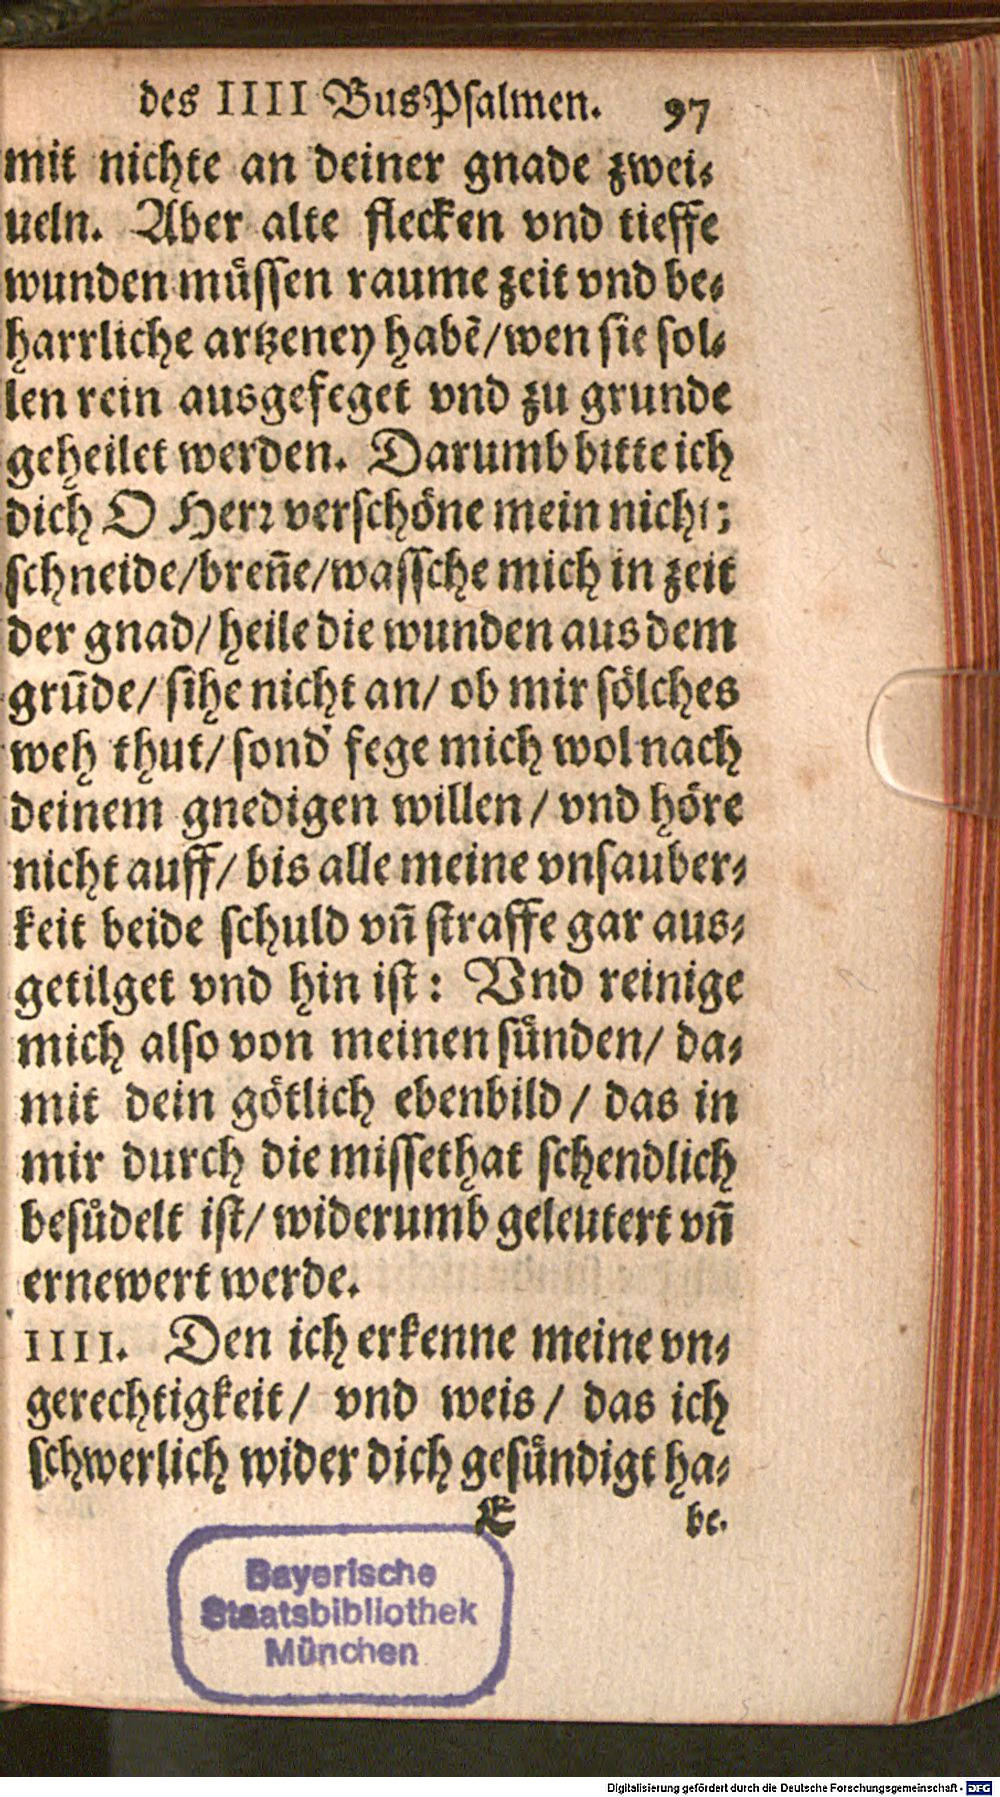 des IIII BusPsalmen. 97
mit nichte an deiner gnade zwei⸗
ueln. Aber alte flecken vnd tieffe
wunden müssen raume zeit vnd be⸗
harrliche artzeney habẽ/wen sie sol⸗
len rein ausgefeget vnd zu grunde
geheilet werden. Darumb bitte ich
dich O Herꝛ verschöne mein nicht;
schneide/breñe/wassche mich in zeit
der gnad/ heile die wunden aus dem
grũde/ sihe nicht an/ ob mir sölches
weh thut/ sond' fege mich wol nach
deinem gnedigen willen / vnd höre
nicht auff/ bis alle meine vnsauber⸗
keit beide schuld vñ straffe gar aus⸗
getilget vnd hin ist: Vnd reinige
mich also von meinen sünden/ da⸗
mit dein götlich ebenbild / das in
mir durch die missethat schendlich
besůdelt ist/ widerumb geleutert vñ
ernewert werde.
IIII. Den ich erkenne meine vn⸗
gerechtigkeit/ vnd weis/ das ich
schwerlich wider dich gesündigt ha⸗
be.
Bayerische
Staatsbibliothek
München
Digitalisierung gefördert durch die Deutsche Forschungsgemeinschaft - DFG